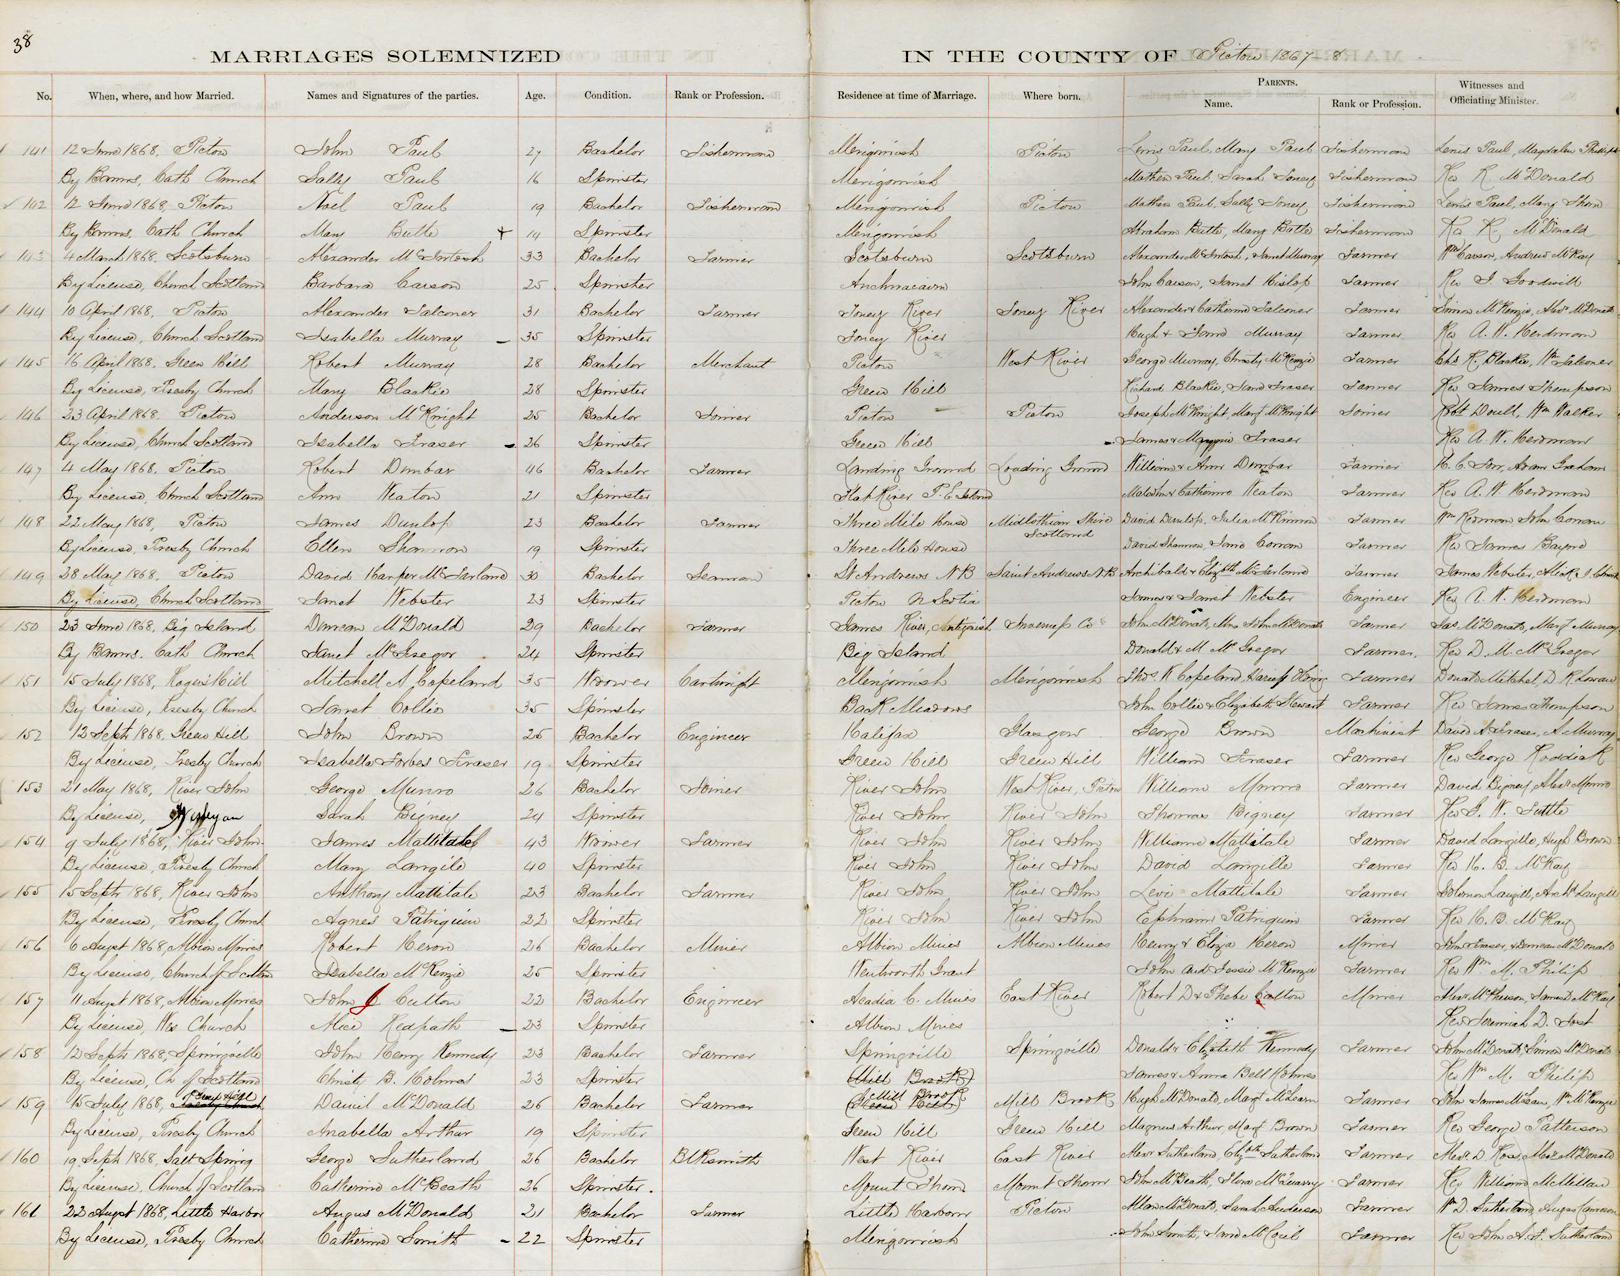 38
MARRIAGES SOLEMNIZED IN THE COUNTY OF Pictou 1867-8
No. When, where, and how Married. Names and Signatures of the parties. Age. Condition. Rank or Profession. Residence at time of Marriage. Where born. PARENTS. Name. Rank or Profession. Witnesses and Officiating Minister.
141 12 June 1868, Pictou John Paul 27 Bachelor Fisherman Merigomish Pictou Lewis Paul, Mary Paul Fisherman Lewis Paul, Magdalen
By Banns, Cath Church Sally Paul 16 Spinster Merigomish Mathew Paul, Sarah Toney Fisherman Rev R McDonald
142 12 June 1868, Pictou Noel Paul 19 Bachelor Fisherman Merigomish Pictou Mathew Paul, Sally Toney Fisherman Lewis Paul, Mary
By Banns, Cath Church Mary Butte + 14 Spinster Merigomish Abraham Butte, Mary Butte Fisherman Rev R. McDonald
143 4 March 1868, Scotsburn Alexander McIntosh 33 Bachelor Farmer Scotsburn Scotsburn Alexander McIntosh, Janet Murray Farmer Wm Carson, Andrew McKay
By License, Church Scotland Barbara Carson 25 Spinster John Carson, Janet Hislop Farmer Rev J. Goodwill
144 10 April 1868, Pictou Alexander Falconer 31 Bachelor Farmer Toney River Toney River Alexander & Catherine Falconer Farmer Simon McKenzie, Alex McDonald
By License, Church Scotland Isabella Murray 35 Spinster Toney River Hugh & Murray Farmer Rev A. W. Herdman
145 16 April 1868, Green Hill Robert Murray 28 Bachelor Merchant Pictou West River George Murray, Christy McKenzie Farmer Chs R. Blackie, Wm Falconer
By License, Presby Church Mary Blackie 28 Spinster Green Hill Richard Blackie, Jane Fraser Farmer Rev James Thompson
146 23 April 1868, Pictou Anderson McKnight 25 Bachelor Joiner Pictou Pictou Joseph McKnight, Margt McKnight Joiner Robt Doull, Wm Walker
By License, Church Scotland Isabella Fraser 26 Spinster Green Hill James & Fraser Rev A. W. Herdman
147 4 May 1868, Pictou Robert Dunbar 46 Bachelor Farmer Loading Ground Loading Ground William & Ann Dunbar Farmer Adam Graham
By License, Church Scotland Ann Keaton 21 Spinster River P. E. Island Malcolm & Catherine Keaton Farmer Rev A. W. Herdman
148 22 May 1868, Pictou James Dunlop 23 Bachelor Farmer Three Mile House Midlothian Shire Scotland David Dunlop, Julia McKinnon Farmer John Conran
By License, Presby Church Ellen Shannon 19 Spinster Three Mile House David Shannon, Jane Conran Farmer Rev James Bayne
149 28 May 1868, Pictou David Harper McFarland 30 Bachelor Seaman St Andrews NB Saint Andrews NB Archibald & Elizbth McFarland Farmer James Webster,
By License, Church Scotland Janet Webster 23 Spinster Pictou N Scotia James & Janet Webster Engineer Rev A. W. Herdman
150 23 June 1868, Big Island Duncan McDonald 29 Bachelor Farmer James River, Antigonish Inverness Co John McDonald, Mrs John McDonald Farmer Jas. McDonald, Margt Murray
By Banns, Cath Church Janet McGregor 24 Spinster Big Island Donald & M McGregor Farmer. Rev D. M. McGregor
151 15 July 1868, Rogers Hill Mitchell A. Copeland 35 Widower Cartwright Merigomish Merigomish Thos. K Copeland, Farmer Donald Mitchel,
By License, Presby Church Janet Collie 35 Spinster Back Meadows John Collie & Elizabeth Stewart Farmer Rev James Thompson
152 12 Septr 1868, Green Hill John Brown 25 Bachelor Engineer Halifax Glasgow George Brown Machinist David A. Fraser, A Murray
By License, Presby Church Isabella Forbes Fraser 19 Spinster Green Hill Green Hill William Fraser Farmer Rev George Roddick
153 21 May 1868, River John George Munro 26 Bachelor Joiner River John West River, Pictou William Munro Farmer David Bigney, Alex Munro
By License, Wesleyan Sarah Bigney 24 Spinster River John River John Thomas Bigney Farmer Rev G. W. Tuttle
154 9 July 1868, River John James Mattatall 43 Widower Farmer River John River John William Mattatale Farmer David Langille, Hugh Brown
By License, Presby Church Mary Langile 40 Spinster River John River John David Langille Farmer Rev H. B. McKay
155 15 Septr 1868, River John Anthony Mattitale 23 Bachelor Farmer River John River John Levi Mattitale Farmer Solomon Langill, Archd Langill
By License, Presby Church Agnes Patriquin 22 Spinster River John River John Ephraim Patriquin Farmer Rev H. B. McKay
156 6 Augst 1868, Albion Mines Robert Heron 26 Bachelor Miner Albion Mines Albion Mines Henry & Eliza Heron Miner John Fraser, Duncan McDonald
By License, Church of Scotland Isabella McKenzie 25 Spinster Wentworth Grant John and Jessie McKenzie Farmer Rev Wm M. Philip
157 11 Augst 1868, Albion Mines John J Culton 22 Bachelor Engineer Acadia C. Mines East River Robert D & Phebe Culton Miner Alex McPherson, James D. McKay
By License, Wes Church Alice Redpath 23 Spinster Albion Mines Rev Jeremiah D. Jost
158 12 Septr 1868, Springville John Henry Kennedy 23 Bachelor Farmer Springville Springville Donald & Elizabeth Kennedy Farmer John McDonald, Simon McDonald
By License, Ch of Scotland Christy B. Holmes 23 Spinster Mill Brook James & Anna Bell Holmes Rev Wm M. Philip
159 15 July 1868, Green Hill Daniel McDonald 26 Bachelor Farmer Mill Brook Mill Brook Hugh McDonald, Margt McLearn Farmer John James McLean, Wm McKenzie
By License, Presby Church Anabella Arthur 19 Spinster Green Hill Green Hill Magnus Arthur, Margt Brown Farmer Rev George Patterson
160 19 Septr 1868, Salt Spring George Sutherland 26 Bachelor Blksmith West River East River Alexr Sutherland, Elizbth Sutherland Farmer Alexr D Ross, Alex McDonald
By License, Church of Scotland Catherine McBeath 26 Spinster. Mount Thom Mount Thom John McBeath, Flora McQuarry Farmer Rev William McMillan
161 22 Augst 1868, Little Harbor Angus McDonald 21 Bachelor Farmer Little Harbour Pictou Allan McDonald, Sarah Anderson Farmer W D. Sutherland, Angus Cameron
By License, Presby Church Catherine Smith 22 Spinster Merigomish John Smith, Jane McCoul Farmer Rev John A. F. Sutherland